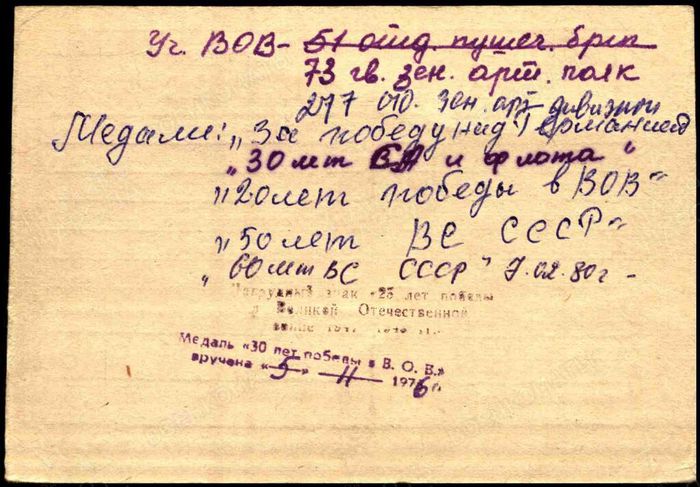 Уч. ВОВ - 51 отд. пушеч. бриг
73 гв. зен. арт. полк
277 отд. зен. арт дивизион
Медали: „За победу над Германией
„30 лет СА и флота"
„20 лет победы в ВОВ"
„50 лет ВС СССР"
„60 лет ВС СССР" 7.02.80г -
Нагрудный знак «25 лет победы
в Великой Отечественной
войне
Медаль «30 лет победы в В. О. В.»
вручена «5» II 1976 г.